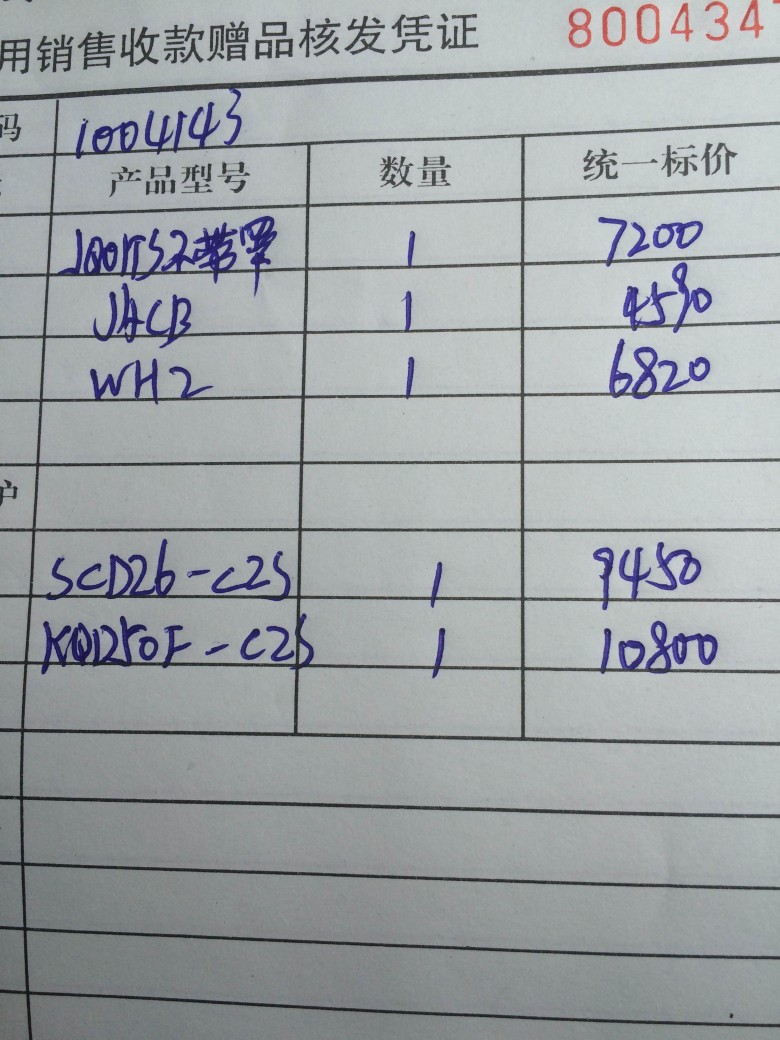 用销售收款赠品核发凭证 8004347
码 1004143
产品型号 数量 统一标价
不带罩 1 7200
JACB 1 4590
WH2 1 6820
户
SCD26-C2S 1 9450
KQD250F-C2S 1 10800